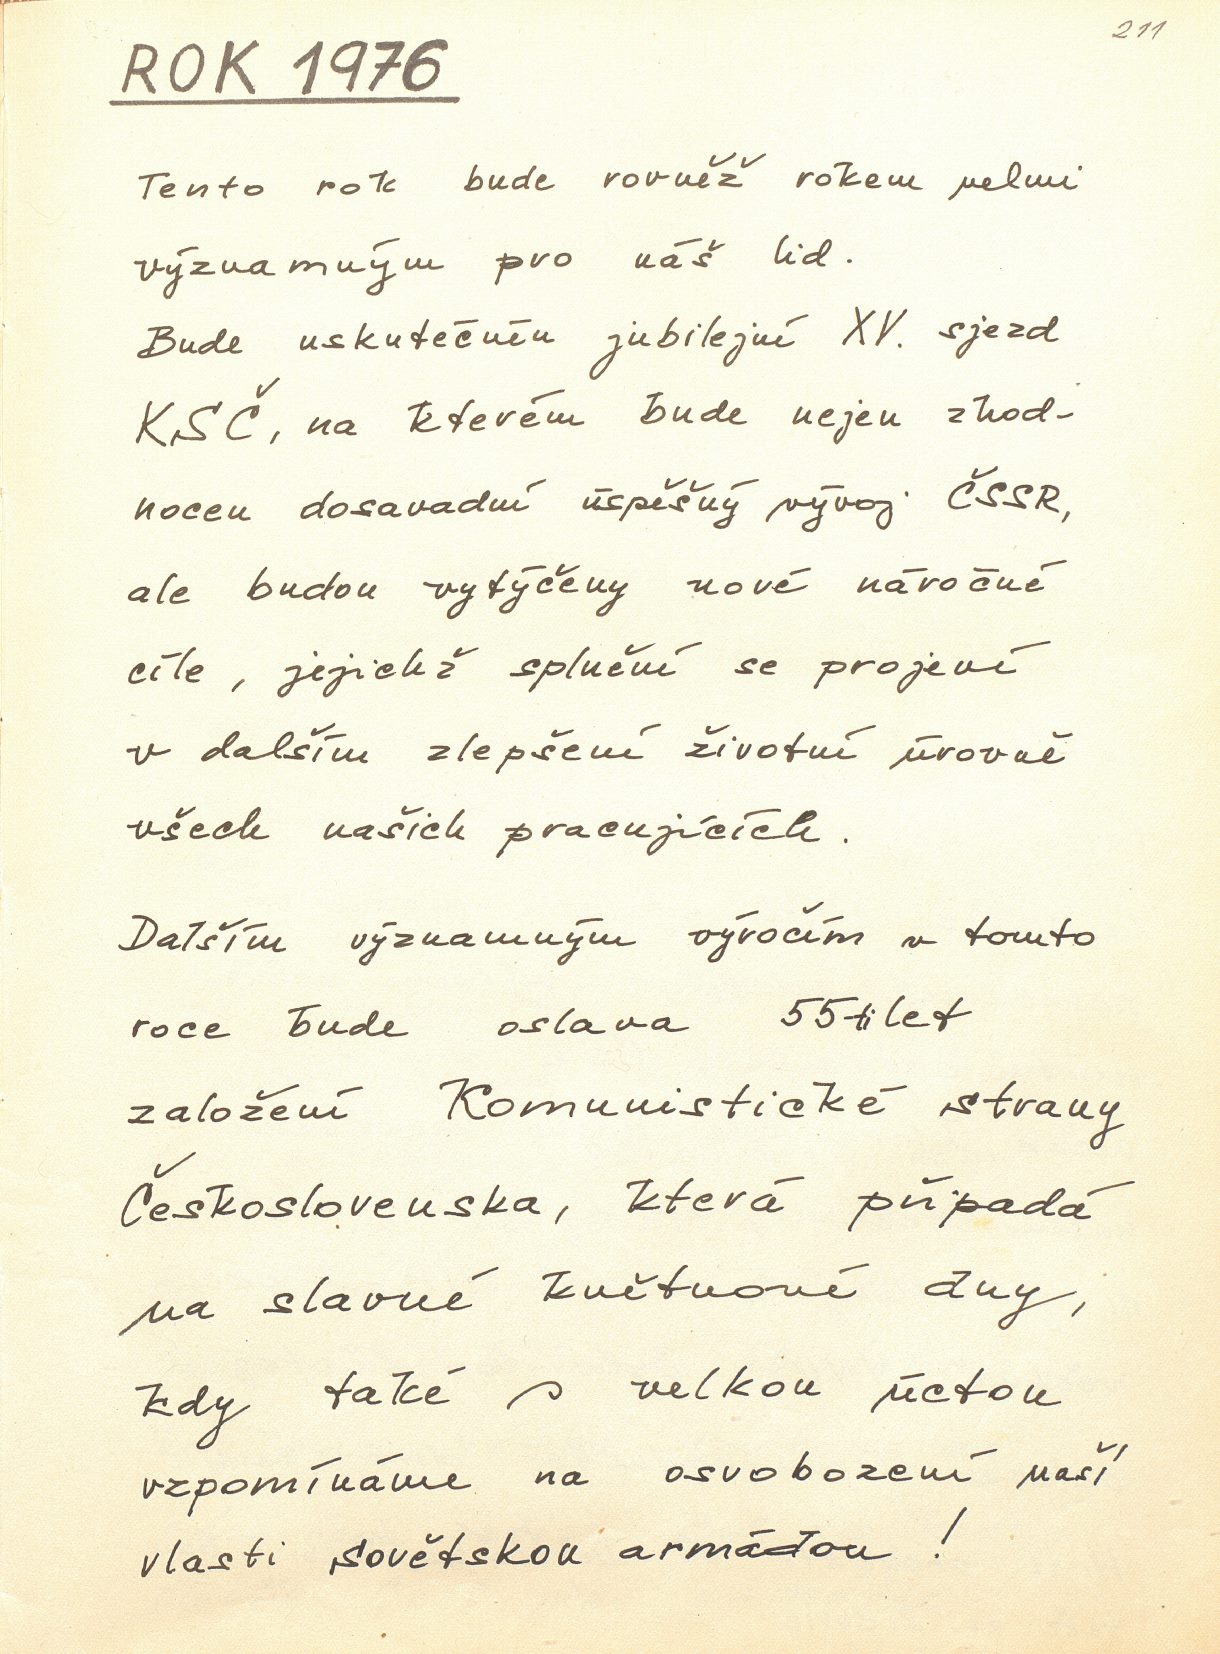 211
ROK 1976
Tento rok bude rovněž rokem velmi
významným pro náš lid.
Bude uskutečněn jubilejní XV. sjezd
KSČ, na kterém bude nejen zhod-
nocen dosavadní úspěšný vývoj ČSSR,
ale budou vytýčeny nové náročné
cíle, jejichž splnění se projeví
v dalším zlepšení životní úrovně
všech našich pracujících.
Dalším významným výročím v tomto
roce bude oslava 55ti let
založení Komunistické strany
Československa, která připadá
na slavné květnové dny,
kdy také s velkou úctou
vzpomínáme na osvobození naší
vlasti sovětskou armádou!